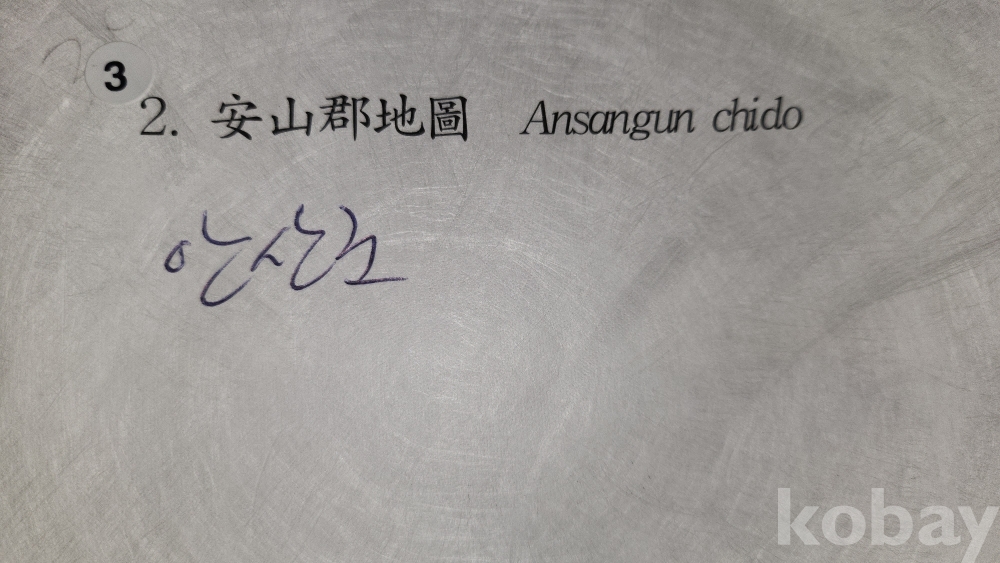 3
2. 安山郡地圖 Ansangun chido
안산군
kobay